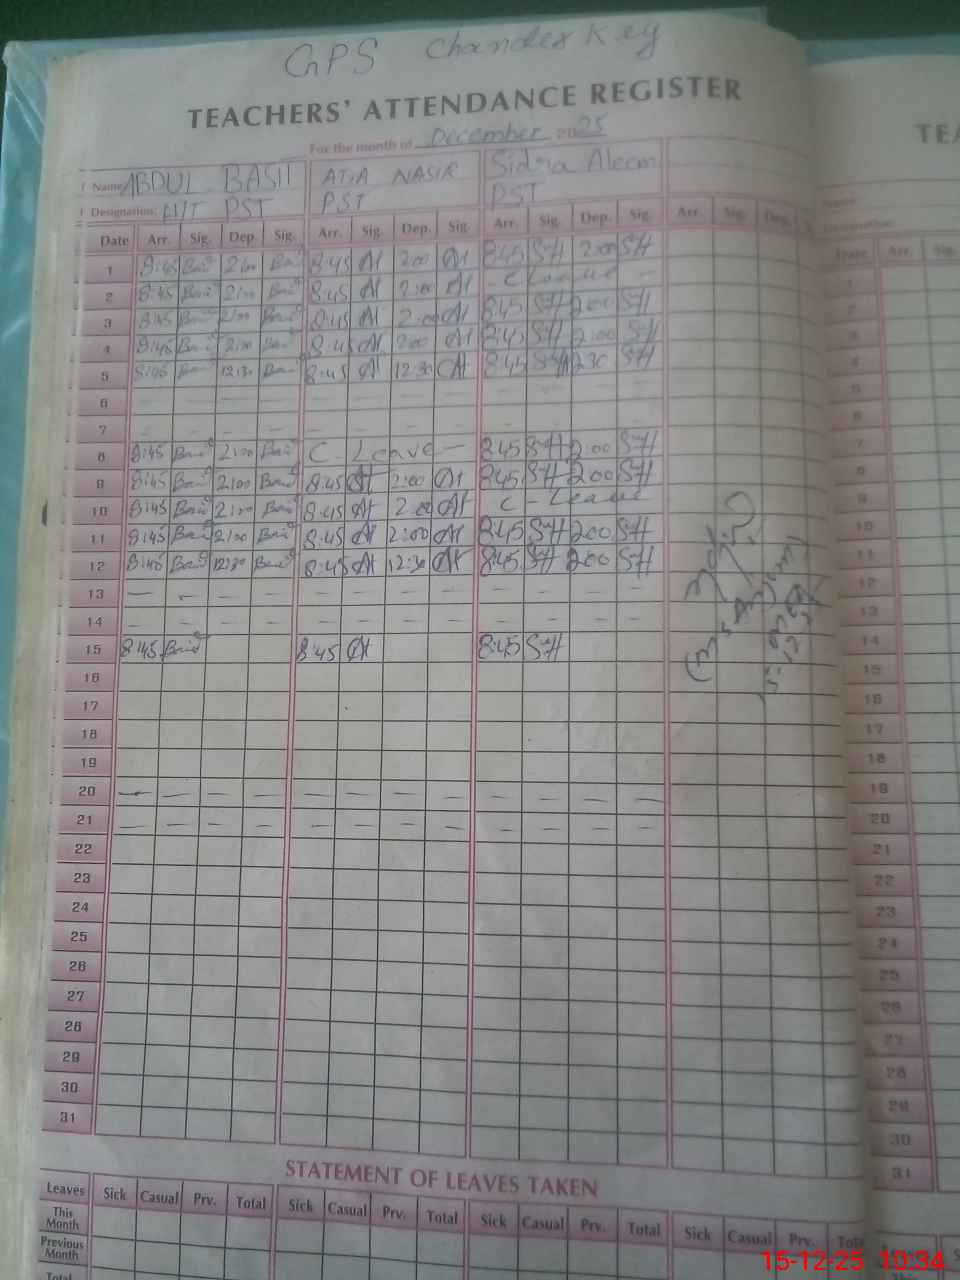 GPS Chander Key
TEACHERS' ATTENDANCE REGISTER
For the month of December 2025
Name ABDUL BASIT ATIA NASIR Sidra Aleem
Designation: H/T PST PST PST
Date Arr. Sig. Dep. Sig. Arr. Sig. Dep. Sig. Arr. Sig. Dep. Sig. Arr. Sig. Dep.
1 8:45 Basit 2:00 Basit 8:45 At 2:00 At 8:45 SH 2:00 SH
2 8:45 Basit 2:00 Basit 8:45 At 2:00 At - C Leave -
3 8:45 Basit 2:00 Basit 8:45 At 2:00 At 8:45 SH 2:00 SH
4 8:45 Basit 2:00 Basit 8:45 At 2:00 At 8:45 SH 2:00 SH
5 8:45 Basit 12:30 Basit 8:45 At 12:30 At 8:45 SH SH
6 - - - - - - - - - - - -
7 - - - - - - - - - - - -
8 8:45 Basit 2:00 Basit C. Leave - 8:45 SH 2:00 SH
9 8:45 Basit 2:00 Basit 8:45 At 2:00 At 8:45 SH 2:00 SH
10 8:45 Basit 2:00 Basit 8:45 At 2:00 At C - Leave
11 8:45 Basit 2:00 Basit 8:45 At 2:00 At 8:45 SH 2:00 SH
12 8:45 Basit 12:30 Basit 8:45 At 12:30 At 8:45 SH 2:00 SH
13 - - - - - - - - - - - -
14 - - - - - - - - - - - -
15 8:45 Basit 8:45 At 8:45 SH
16
17
18
19
20 - - - - - - - - - - - -
21 - - - - - - - - - - - -
22
23
24
25
26
27
28
29
30
31
STATEMENT OF LEAVES TAKEN
Leaves Sick Casual Prv. Total Sick Casual Prv. Total Sick Casual Prv. Total Sick Casual Prv.
This Month
Previous Month
Total
TEA
Date Arr. Sig.
1
2
3
4
5
6
7
8
9
10
11
12
13
14
15
16
17
18
19
20
21
22
23
24
25
26
27
28
29
30
31
15-12-25 10:34